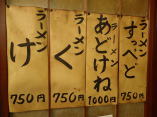 ラーメン
すっぺと
750円
ラーメン
あどけね
1000円
ラーメン
く
750円
ラーメン
け
750円